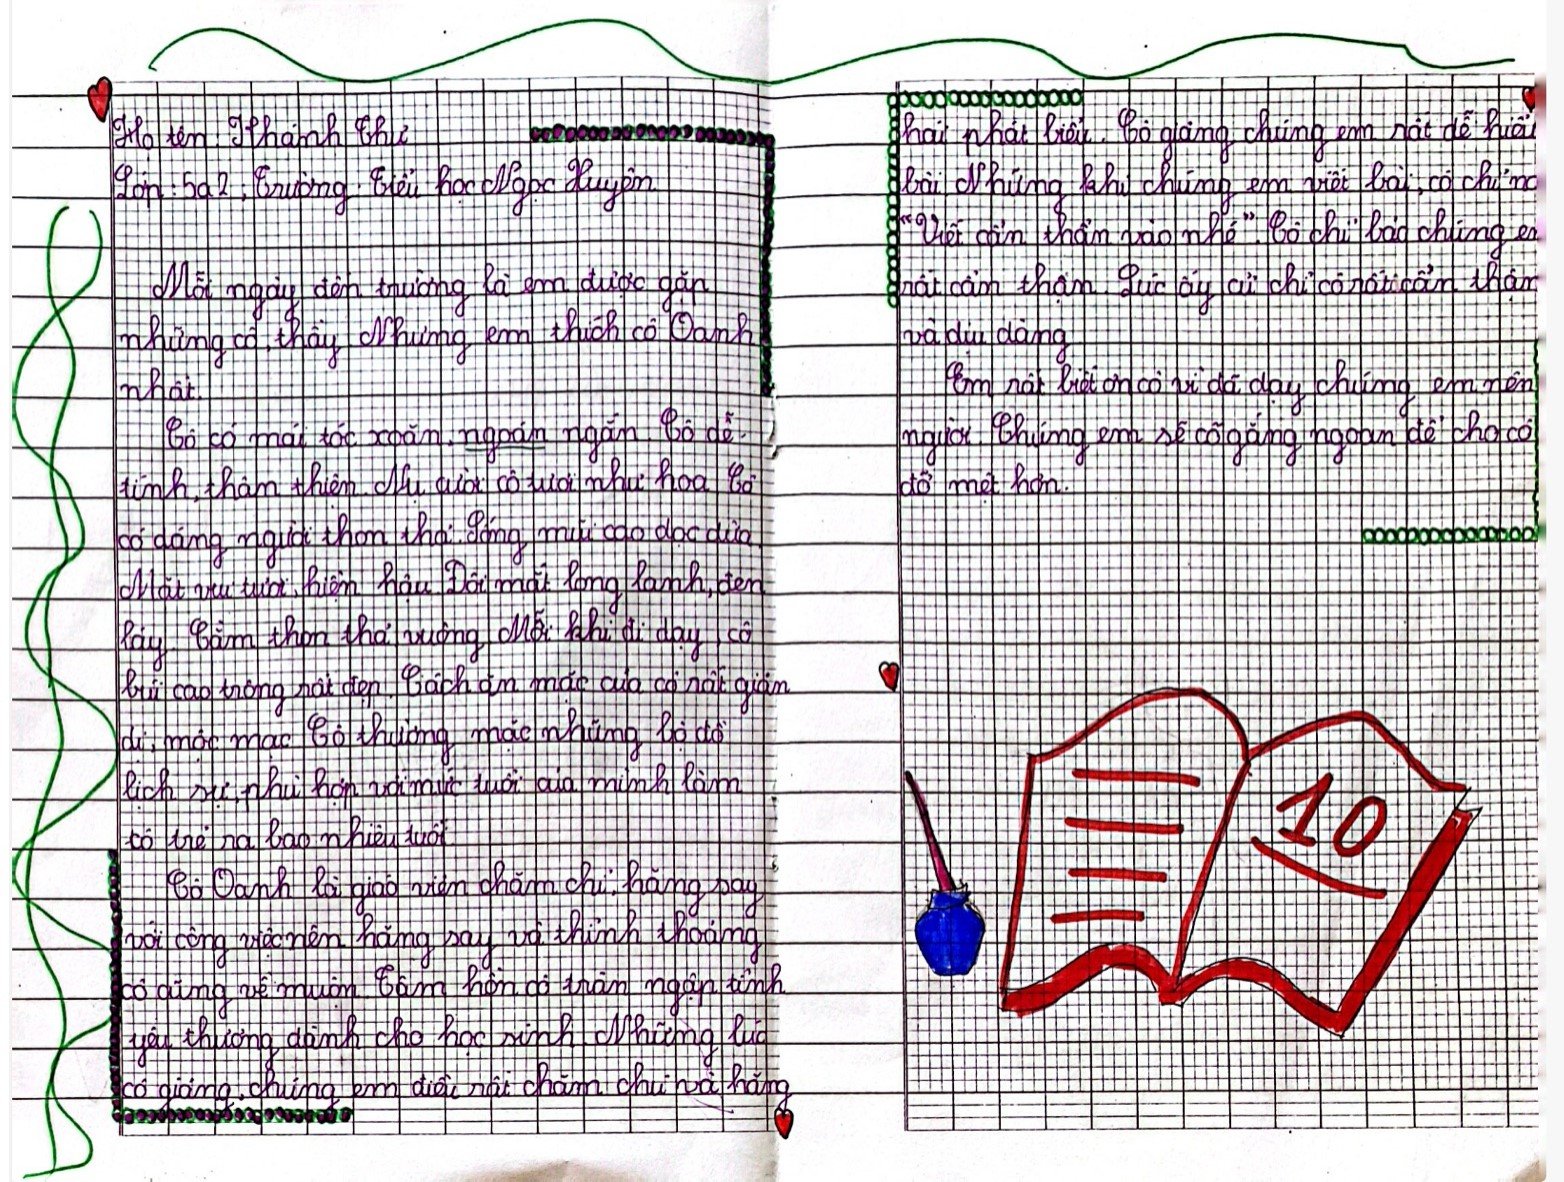 Họ tên: Khánh Thư
Lớp: 5a2, Trường: Tiểu học Ngọc Xuyên
Mỗi ngày đến trường là em được gặp
những cô, thầy. Nhưng em thích cô Oanh
nhất.
Cô có mái tóc xoăn, ngoắn ngắn. Cô dễ
tính, thân thiện. Nụ cười cô tươi như hoa. Cô
có dáng người thon thả. Sống mũi cao dọc dừa.
Mặt vui tươi, hiền hậu. Đôi mắt long lanh, đen
láy. Cằm thon thả vuông. Mỗi khi đi dạy, cô
búi cao trông rất đẹp. Cách ăn mặc của cô rất giản
dị, mộc mạc. Cô thường mặc những bộ đồ
lịch sự, phù hợp với mức tuổi của mình làm
cô trẻ ra bao nhiêu tuổi.
Cô Oanh là giáo viên chăm chỉ, hăng say
với công việc nên hăng say và thỉnh thoảng
cô cũng về muộn. Tâm hồn cô tràn ngập tình
yêu thương dành cho học sinh. Những lúc
cô giảng, chúng em điều rất chăm chú và hăng
hái phát biểu. Cô giảng chúng em rất dễ hiểu
bài. Những khi chúng em viết bài, cô chỉ nó
"Viết cẩn thẩn vào nhé". Cô chỉ bảo chúng em
rất cẩn thận. Lúc ấy cử chỉ cô rất cẩn thận
và dịu dàng
Em rất biết ơn cô vì đã dạy chúng em nên
người. Chúng em sẽ cố gắng ngoan để cho cô
đỡ mệt hơn.
10